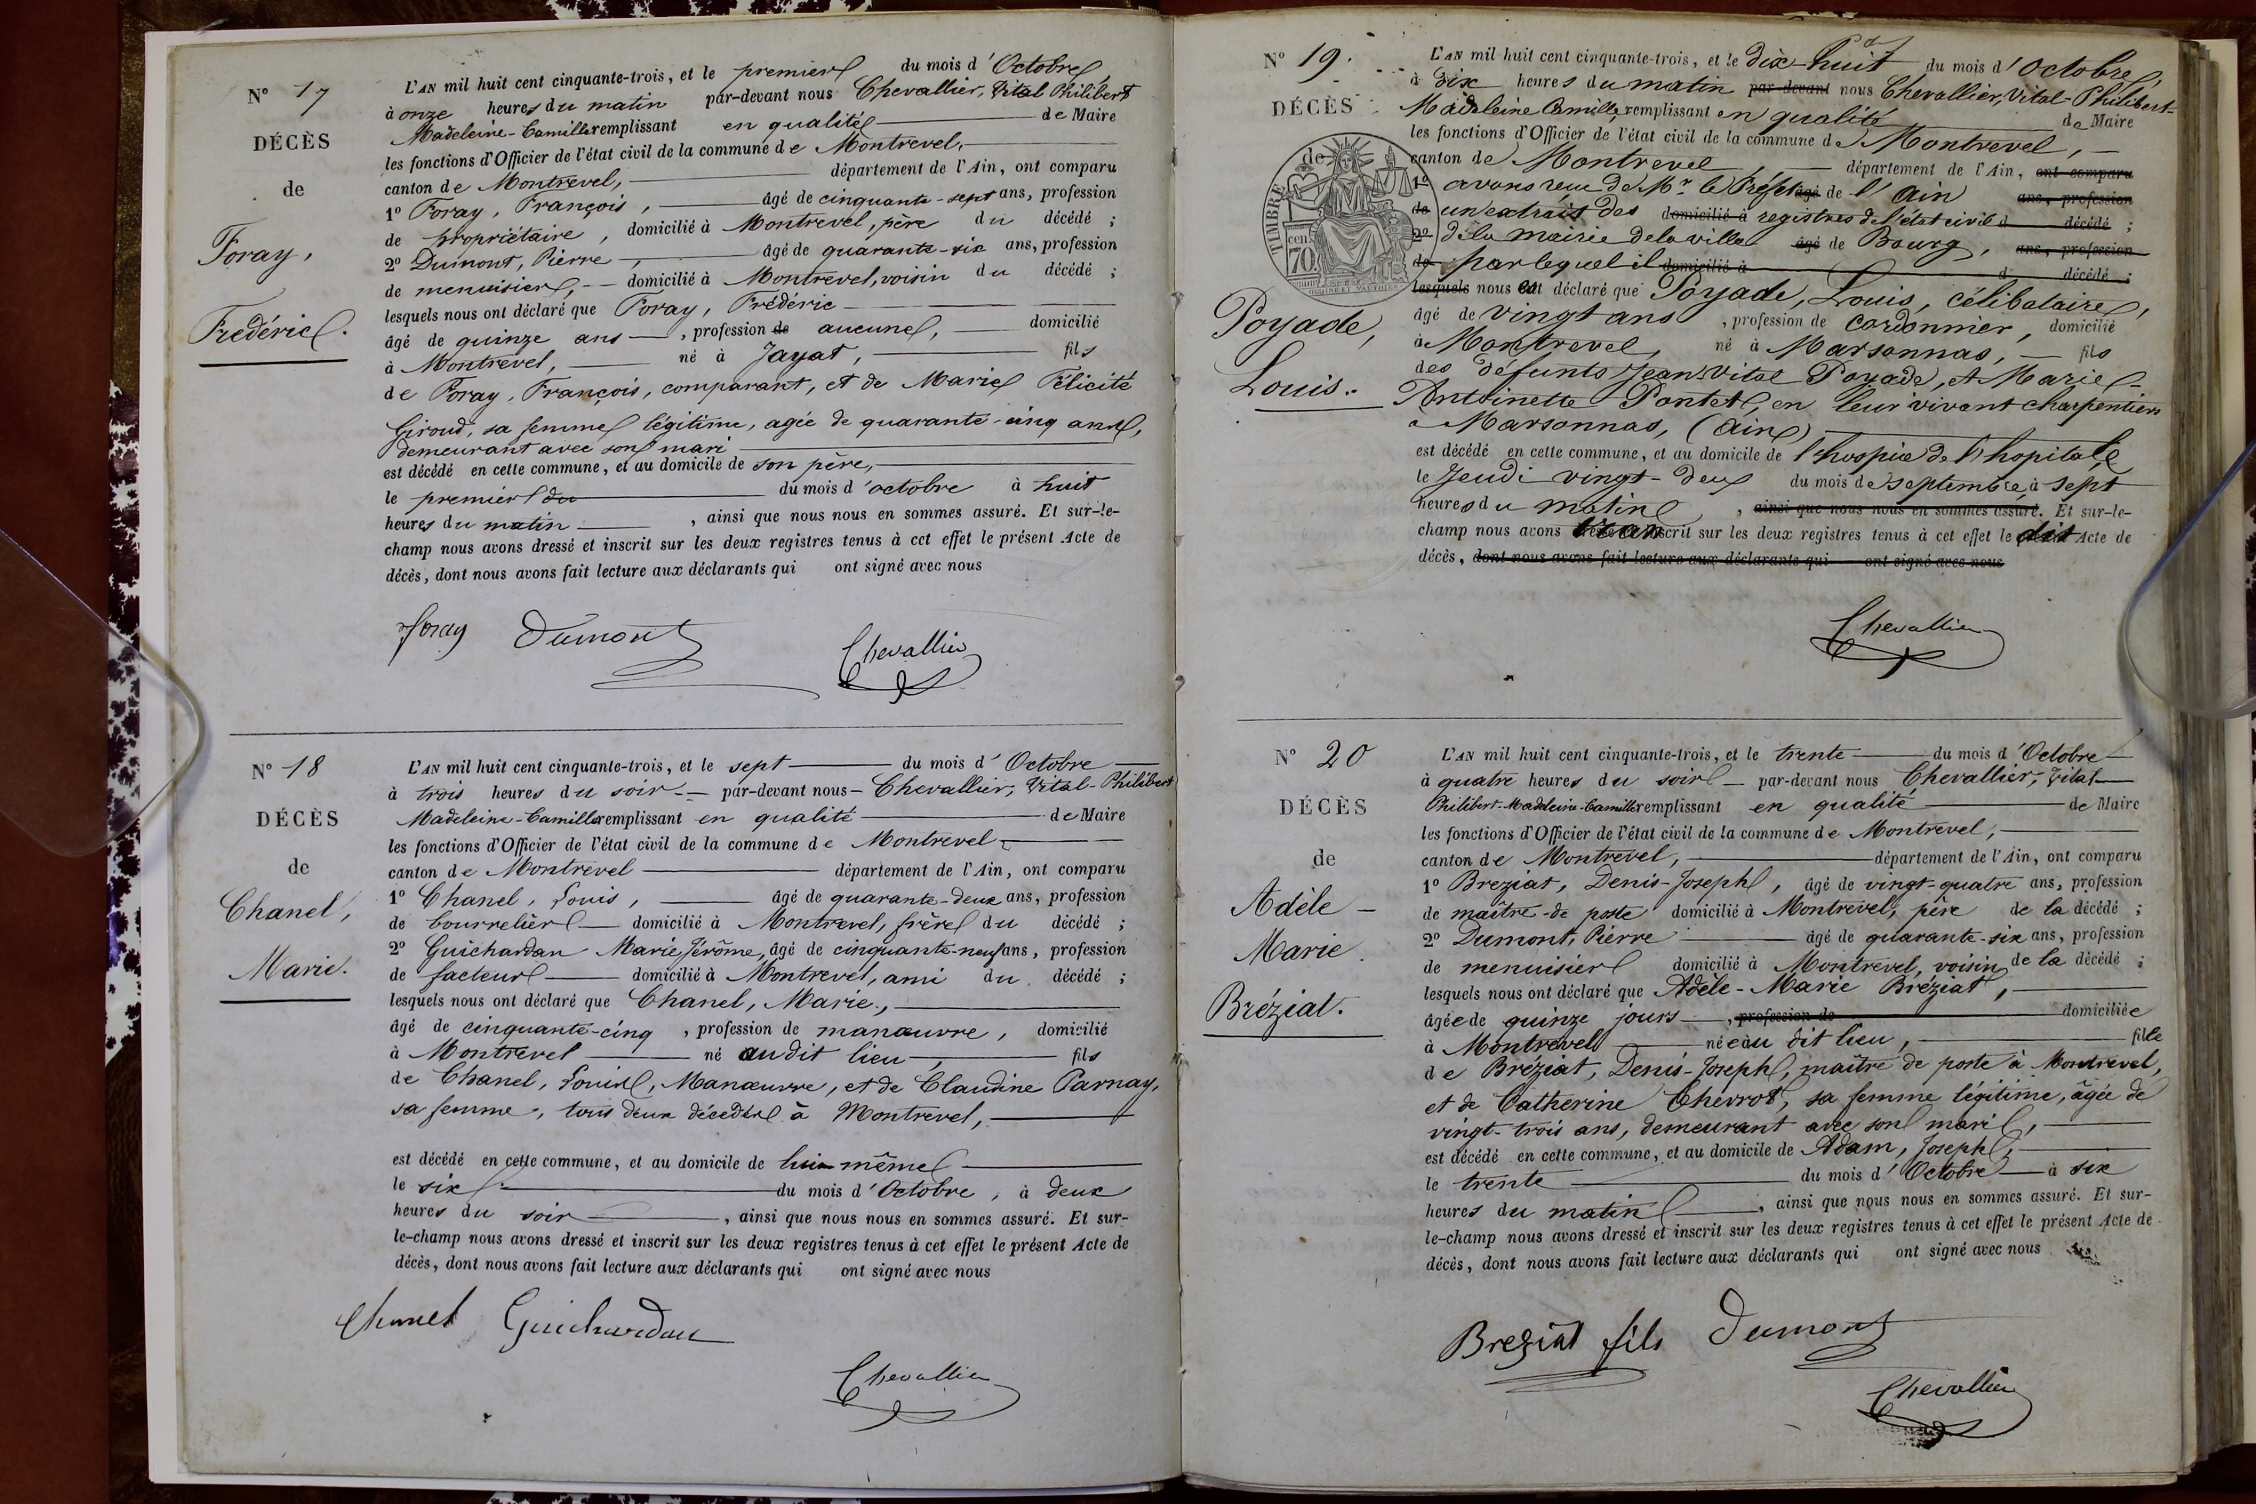 N° 17
DÉCÈS
de
Foray,
Frédéric.
L'AN mil huit cent cinquante-trois, et le premier du mois d'Octobre,
à onze heures du matin par-devant nous Chevallier, Vital Philibert
Madeleine-Camille remplissant en qualité de Maire
les fonctions d'Officier de l'état civil de la commune de Montrevel,
canton de Montrevel, département de l'Ain, ont comparu
1° Foray, François, âgé de cinquante-sept ans, profession
de propriétaire, domicilié à Montrevel, père du décédé ;
2° Dumont, Pierre, âgé de quarante-six ans, profession
de menuisier, domicilié à Montrevel, voisin du décédé ;
lesquels nous ont déclaré que Foray, Frédéric
âgé de quinze ans, profession de aucune, domicilié
à Montrevel, né à Jayat, fils
de Foray, François, comparant, et de Marie Félicité
Giroud, sa femme légitime, agée de quarante-cinq anns,
demeurant avec son mari
est décédé en cette commune, et au domicile de son père,
le premier du du mois d'octobre à huit
heures du matin, ainsi que nous nous en sommes assuré. Et sur-le-
champ nous avons dressé et inscrit sur les deux registres tenus à cet effet le présent Acte de
décès, dont nous avons fait lecture aux déclarants qui ont signé avec nous
foray Dumont Chevallier
N° 18
DÉCÈS
de
Chanel,
Marie.
L'AN mil huit cent cinquante-trois, et le sept du mois d'Octobre
à trois heures du soir par-devant nous Chevallier, Vital-Philibert
Madeleine-Camille remplissant en qualité de Maire
les fonctions d'Officier de l'état civil de la commune de Montrevel
canton de Montrevel département de l'Ain, ont comparu
1° Chanel, Louis, âgé de quarante-deux ans, profession
de bourrelier domicilié à Montrevel, frère du décédé ;
2° Guichardan Marie Jérôme, âgé de cinquante-neuf ans, profession
de facteur domicilié à Montrevel, ami du décédé ;
lesquels nous ont déclaré que Chanel, Marie,
âgé de cinquante-cinq, profession de manœuvre, domicilié
à Montrevel né audit lieu, fils
de Chanel, Louis, Manœuvre, et de Claudine Parnay,
sa femme, tous deux décédés à Montrevel,
est décédé en cette commune, et au domicile de lui-même
le six du mois d'Octobre, à deux
heures du soir, ainsi que nous nous en sommes assuré. Et sur-
le-champ nous avons dressé et inscrit sur les deux registres tenus à cet effet le présent Acte de
décès, dont nous avons fait lecture aux déclarants qui ont signé avec nous
Chanel Guichardan
Chevallier
N° 19.
DÉCÈS
de
TIMBRE
70
Poyade,
Louis.
L'AN mil huit cent cinquante-trois, et le dix-huit du mois d'Octobre,
à dix heures du matin par-devant nous Chevallier, Vital-Philibert-
Madeleine Camille, remplissant en qualité de Maire
les fonctions d'Officier de l'état civil de la commune de Montrevel,
canton de Montrevel département de l'Ain, ont comparu
1° avons reçu de Mr le Préfet âgé de l'Ain ans, profession
de un extrait des domicilié à registres de l'état civil d décédé ;
2° de la mairie de la ville âgé de Bourg, ans, profession
de par lequel il domicilié à d décédé ;
lesquels nous est déclaré que Poyade, Louis, célibataire,
âgé de vingt ans, profession de cordonnier, domicilié
à Montrevel, né à Marsonnas, fils
des défunts Jean Vital Poyade, et Marie-
Antoinette Pontet, en leur vivant charpentiers
à Marsonnas, (Ain)
est décédé en cette commune, et au domicile de l'hospice de l'hopitale
le Jeudi vingt-deux du mois de septembre à sept
heures du matin, ainsi que nous nous en sommes assuré. Et sur-le-
champ nous avons inscrit sur les deux registres tenus à cet effet le dit Acte de
décès, dont nous avons fait lecture aux déclarants qui ont signé avec nous
Chevallier
N° 20
DÉCÈS
de
Adèle-
Marie
Bréziat.
L'AN mil huit cent cinquante-trois, et le trente du mois d'Octobre
à quatre heures du soir par-devant nous Chevallier, Vital
Philibert-Madeleine-Camille remplissant en qualité de Maire
les fonctions d'Officier de l'état civil de la commune de Montrevel,
canton de Montrevel, département de l'Ain, ont comparu
1° Breziat, Denis-Joseph, âgé de vingt-quatre ans, profession
de maître-de poste domicilié à Montrevel, père de la décédé ;
2° Dumont, Pierre âgé de quarante-six ans, profession
de menuisier domicilié à Montrevel, voisin de la décédé ;
lesquels nous ont déclaré que Adèle-Marie Bréziat,
âgée de quinze jours, profession de domiciliée
à Montrevel née au dit lieu, fille
de Bréziat, Denis-Joseph, maître de poste à Montrevel,
et de Catherine Chevrot, sa femme légitime, âgée de
vingt-trois ans, demeurant avec son mari,
est décédé en cette commune, et au domicile de Adam, Joseph,
le trente du mois d'Octobre à six
heures du matin, ainsi que nous nous en sommes assuré. Et sur-
le-champ nous avons dressé et inscrit sur les deux registres tenus à cet effet le présent Acte de
décès, dont nous avons fait lecture aux déclarants qui ont signé avec nous
Breziat fils Dumont
Chevallier